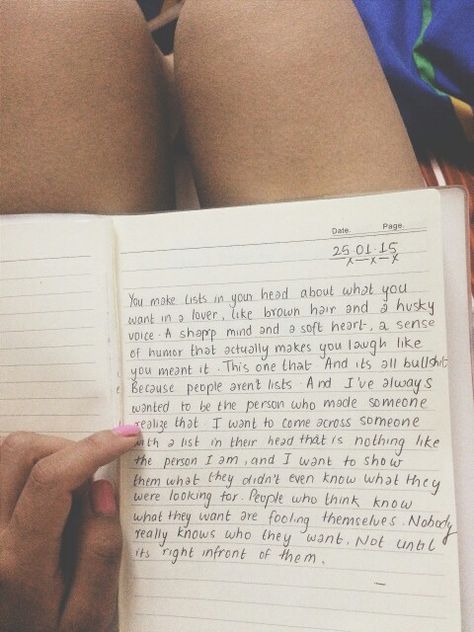 Date. Page.
25.01.15
You make lists in your head about what you
want in a lover, like brown hair and a husky
voice. A sharp mind and a soft heart, a sense
of humor that actually makes you laugh like
you meant it. This one that. And its all bullshit.
Because people arent lists. And I've always
wanted to be the person who made someone
realize that. I want to come across someone
with a list in their head that is nothing like
the person I am, and I want to show
them what they didn't even know what they
were looking for. People who think know
what they want are fooling themselves. Nobody
really knows who they want. Not until
its right infront of them.